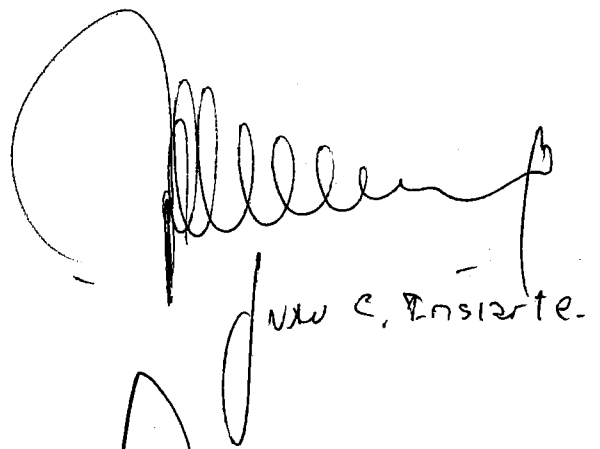 Juan C. Insiarte.